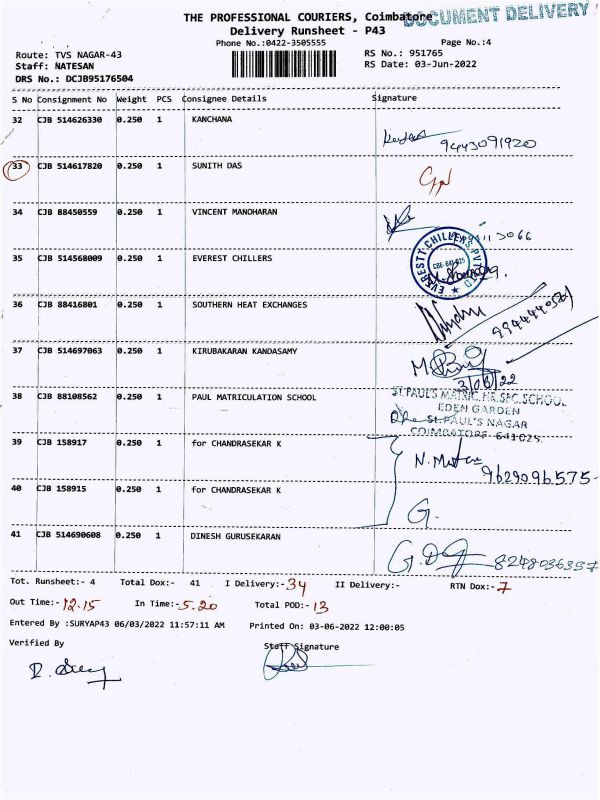 THE PROFESSIONAL COURIERS, Coimbatore
DOCUMENT DELIVERY
Delivery Runsheet - P43
Phone No.:0422-3505555 Page No.:4
Route: TVS NAGAR-43 RS No.: 951765
Staff: NATESAN RS Date: 03-Jun-2022
DRS No.: DCJB95176504
S No Consignment No Weight PCS Consignee Details Signature
32 CJB 514626330 0.250 1 KANCHANA
9443091920
33 CJB 514617820 0.250 1 SUNITH DAS
34 CJB 88450559 0.250 1 VINCENT MANOHARAN
35 CJB 514568009 0.250 1 EVEREST CHILLERS
EVERESTT CHILLERS PVT LTD
CBE-641 025
36 CJB 88416801 0.250 1 SOUTHERN HEAT EXCHANGES
37 CJB 514697063 0.250 1 KIRUBAKARAN KANDASAMY
3/06/22
38 CJB 88108562 0.250 1 PAUL MATRICULATION SCHOOL
ST.PAUL'S MATRIC.HR.SEC.SCHOOL
EDEN GARDEN
ST.PAUL'S NAGAR
COIMBATORE- 641 025
39 CJB 158917 0.250 1 for CHANDRASEKAR K
9629096575-
40 CJB 158915 0.250 1 for CHANDRASEKAR K
G.
41 CJB 514690608 0.250 1 DINESH GURUSEKARAN
8248036357
Tot. Runsheet:- 4 Total Dox:- 41 I Delivery:-34 II Delivery:- RTN Dox:-7
Out Time:-12.15 In Time:-5.20 Total POD:-13
Entered By :SURYAP43 06/03/2022 11:57:11 AM Printed On: 03-06-2022 12:00:05
Verified By Staff Signature